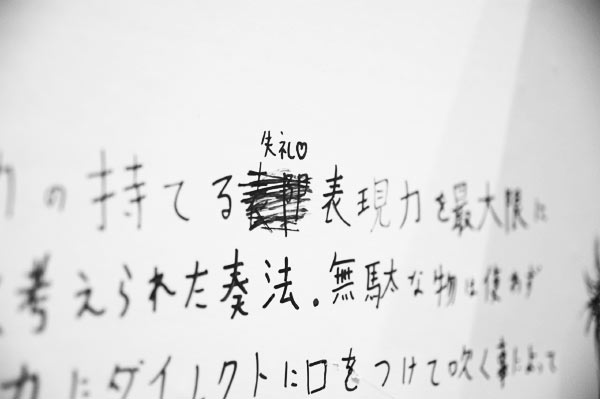 失礼♡
の持てる表現力を最大限に
考えられた奏法。無駄な物は使わず
カにダイレクトに口をつけて吹く事によって